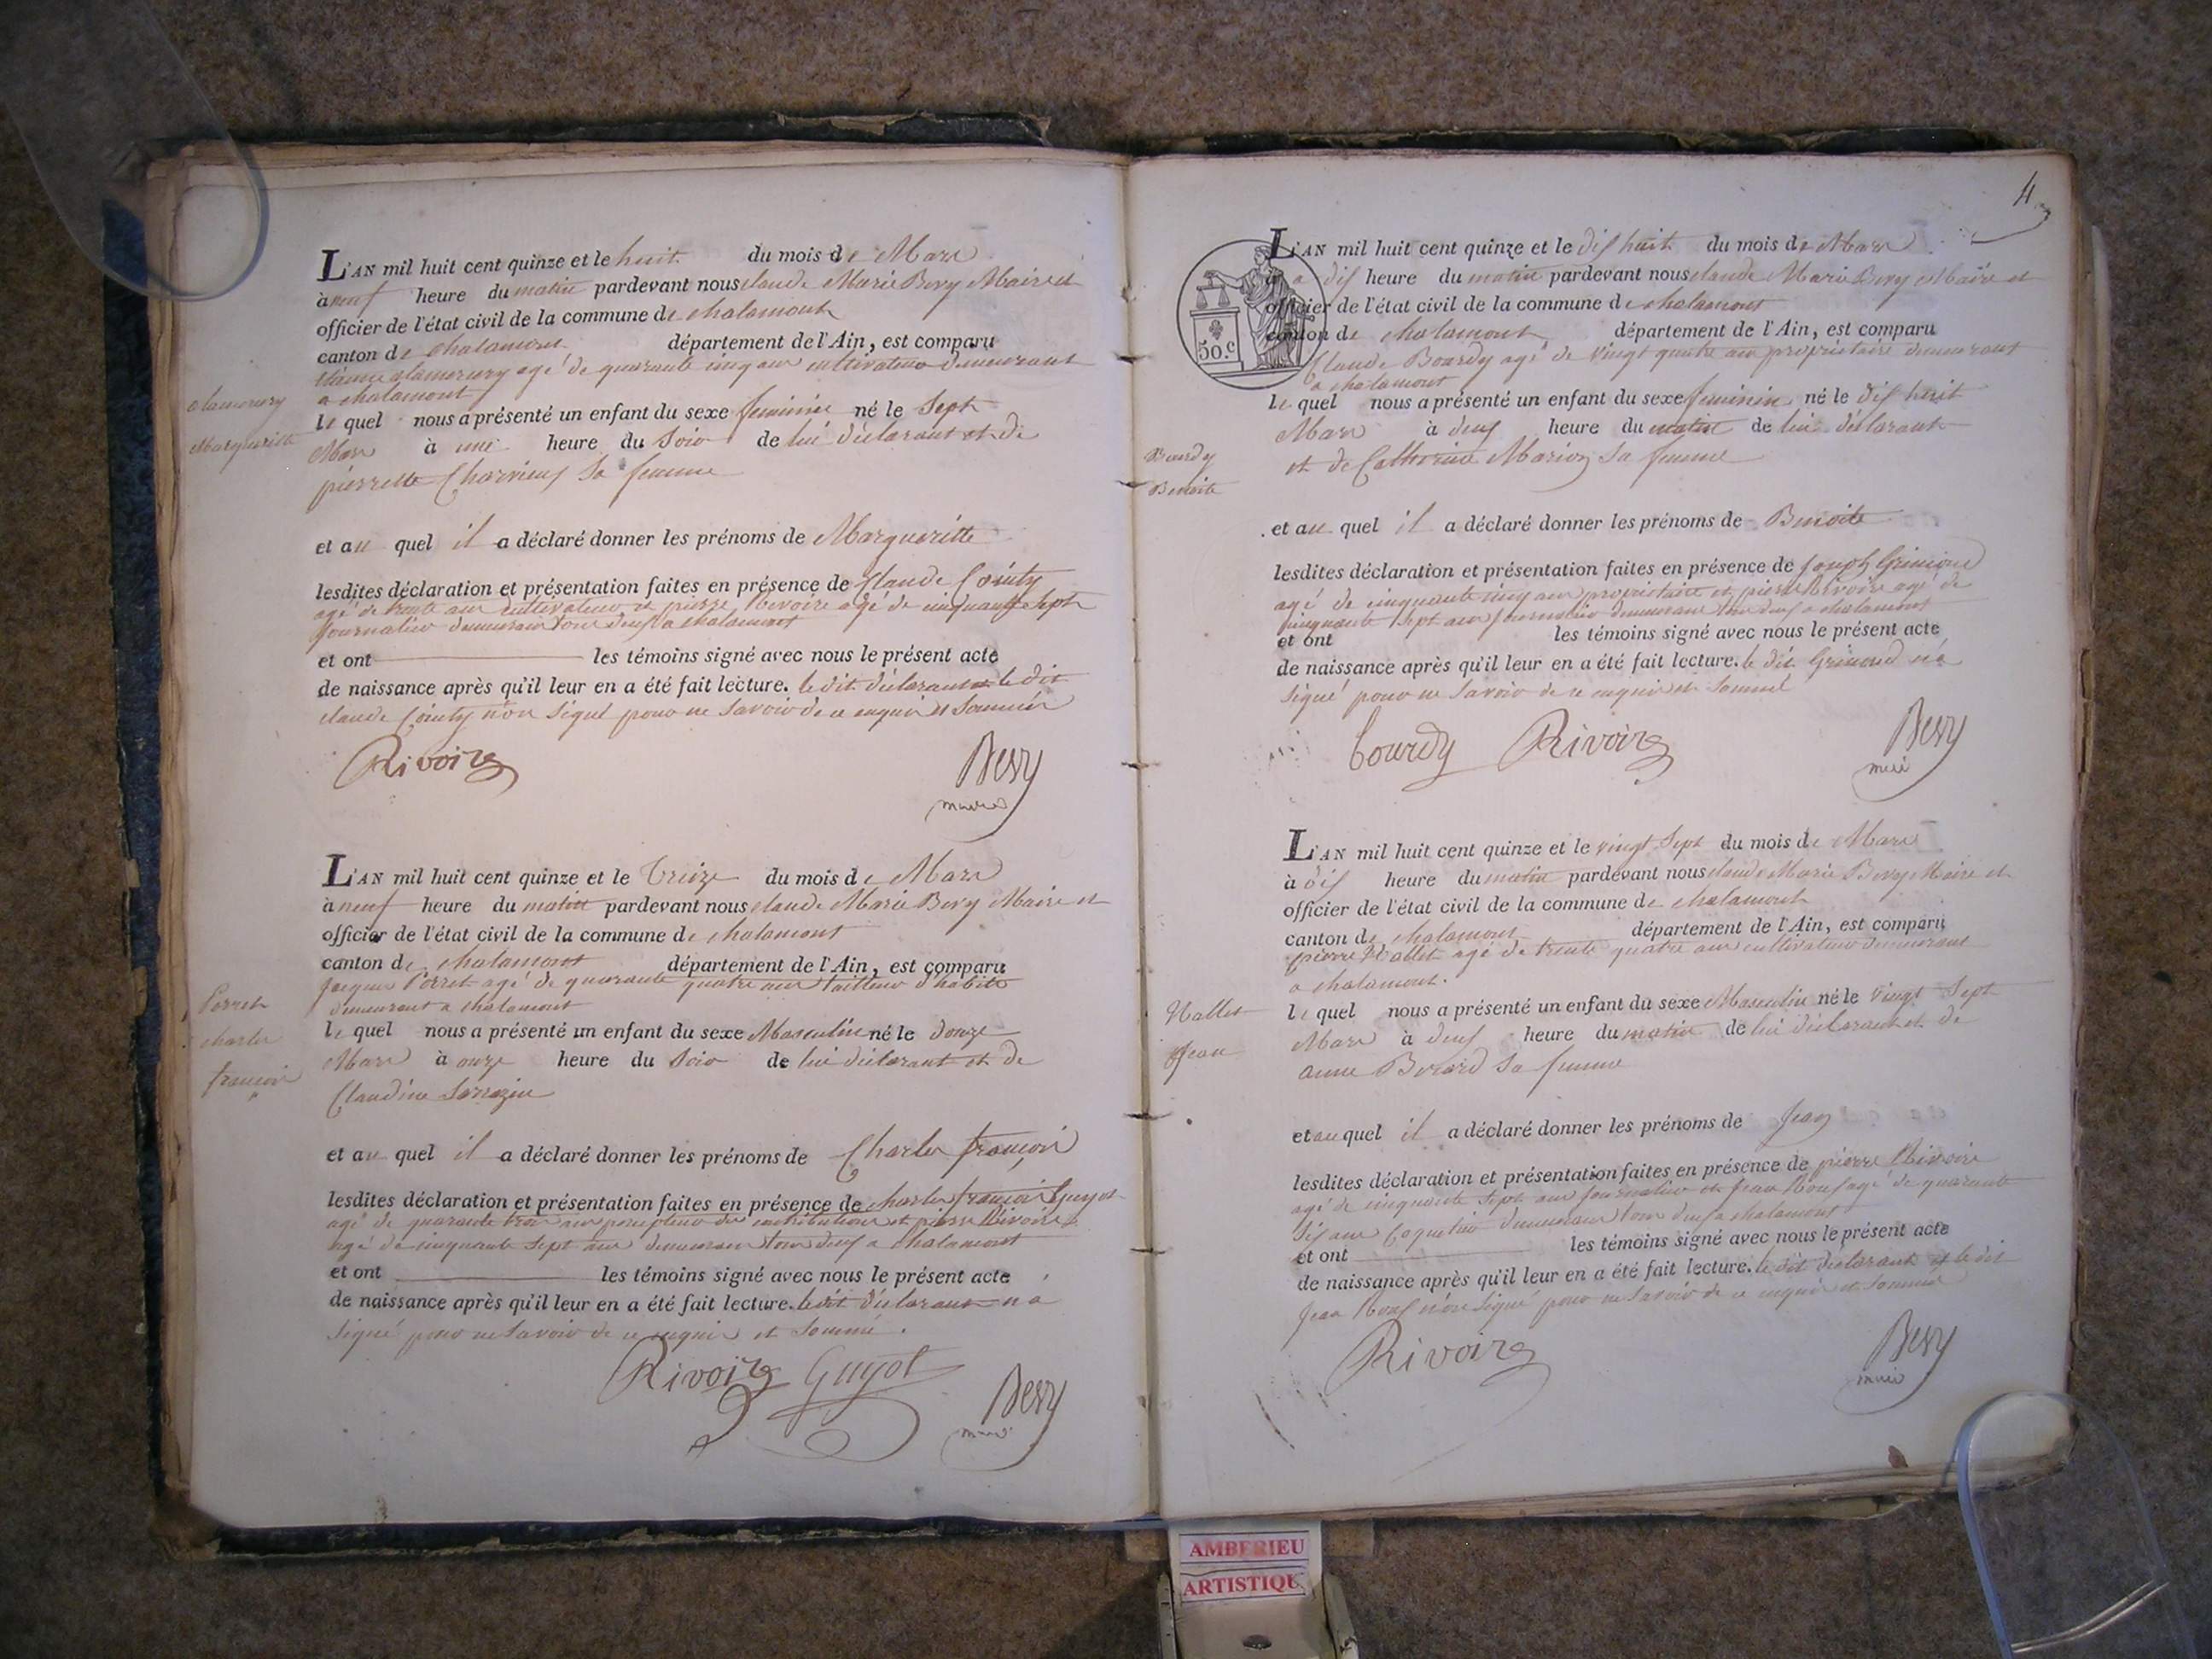 L'AN mil huit cent quinze et le huit du mois de Mars
à neuf heure du matin pardevant nous claude Marie Bevy Maire et
officier de l'état civil de la commune de chalamont
canton de chalamont département de l'Ain, est comparu
agé de quarante cinq ans cultivateur demeurant
a chalamont
le quel nous a présenté un enfant du sexe feminin né le Sept
Margueritte
Mars à une heure du Soir de lui déclarant et de
pierrette Charvieux Sa femme
et au quel il a déclaré donner les prénoms de Margueritte
lesdites déclaration et présentation faites en présence de Claude Cointy
agé de trente ans cultivateur et pierre Rivoire agé de cinquante Sept
journalier demeurant tous deux a chalamont
et ont les témoins signé avec nous le présent acte
de naissance après qu'il leur en a été fait lecture. le dit déclarant et le dit
claude Cointy n'on Signé pour ne Savoir de ce enquis et Sommés
Rivoire Bevy
maire
L'AN mil huit cent quinze et le Treize du mois de Mars
à neuf heure du matin pardevant nous claude Marie Bevy Maire et
officier de l'état civil de la commune de chalamont
canton de chalamont département de l'Ain, est comparu
jacques Perret agé de quarante quatre ans tailleur d'habits
Perret
demeurant a chalamont
le quel nous a présenté un enfant du sexe Masculin né le douze
charles
Mars à onze heure du Soir de lui déclarant et de
françois
Claudine Sarrazin
et au quel il a déclaré donner les prénoms de Charles françois
lesdites déclaration et présentation faites en présence de charles françois Guyot
agé de quarante trois ans percepteur des contributions et pierre Rivoire
agé de cinquante Sept ans demeurant tous deux a chalamont
et ont les témoins signé avec nous le présent acte
de naissance après qu'il leur en a été fait lecture. ledit déclarant n'a
Signé pour ne Savoir de ce enquis et Sommé.
Rivoire Guyot
Bevy
maire
4
L'AN mil huit cent quinze et le dix huit du mois de Mars
a dix heure du matin pardevant nous claude Marie Bevy Maire et
officier de l'état civil de la commune de chalamont
canton de chalamont département de l'Ain, est comparu
50.c
Claude Bourdy agé de vingt quatre ans propriétaire demeurant
a chalamont
le quel nous a présenté un enfant du sexe feminin né le dix huit
Mars à deux heure du matin de lui déclarant
Bourdy
et de Catherine Marion Sa femme
Benoite
et au quel il a déclaré donner les prénoms de Benoite
lesdites déclaration et présentation faites en présence de Joseph
agé de cinquante cinq ans propriétaire et pierre Rivoire agé de
cinquante Sept ans journalier demeurant tous deux a chalamont
et ont les témoins signé avec nous le présent acte
de naissance après qu'il leur en a été fait lecture. le dit n'a
Signé pour ne Savoir de ce enquis et Sommé
bourdy Rivoire Bevy
maire
L'AN mil huit cent quinze et le vingt Sept du mois de Mars
à dix heure du matin pardevant nous claude Marie Bevy Maire et
officier de l'état civil de la commune de chalamont
canton de chalamont département de l'Ain, est comparu
pierre agé de trente quatre ans cultivateur demeurant
a chalamont.
le quel nous a présenté un enfant du sexe Masculin né le vingt Sept
Mars à deux heure du matin de lui déclarant et de
Jean
anne Sa femme
et au quel il a déclaré donner les prénoms de Jean
lesdites déclaration et présentation faites en présence de pierre Rivoire
agé de cinquante Sept ans journalier et Jean Roux agé de quarante
Six ans Coquetier demeurant tous deux a chalamont
et ont les témoins signé avec nous le présent acte
de naissance après qu'il leur en a été fait lecture. le dit déclarant et le dit
Jean Roux n'on Signé pour ne Savoir de ce enquis et Sommé
Rivoire Bevy
maire
AMBERIEU
ARTISTIQUE